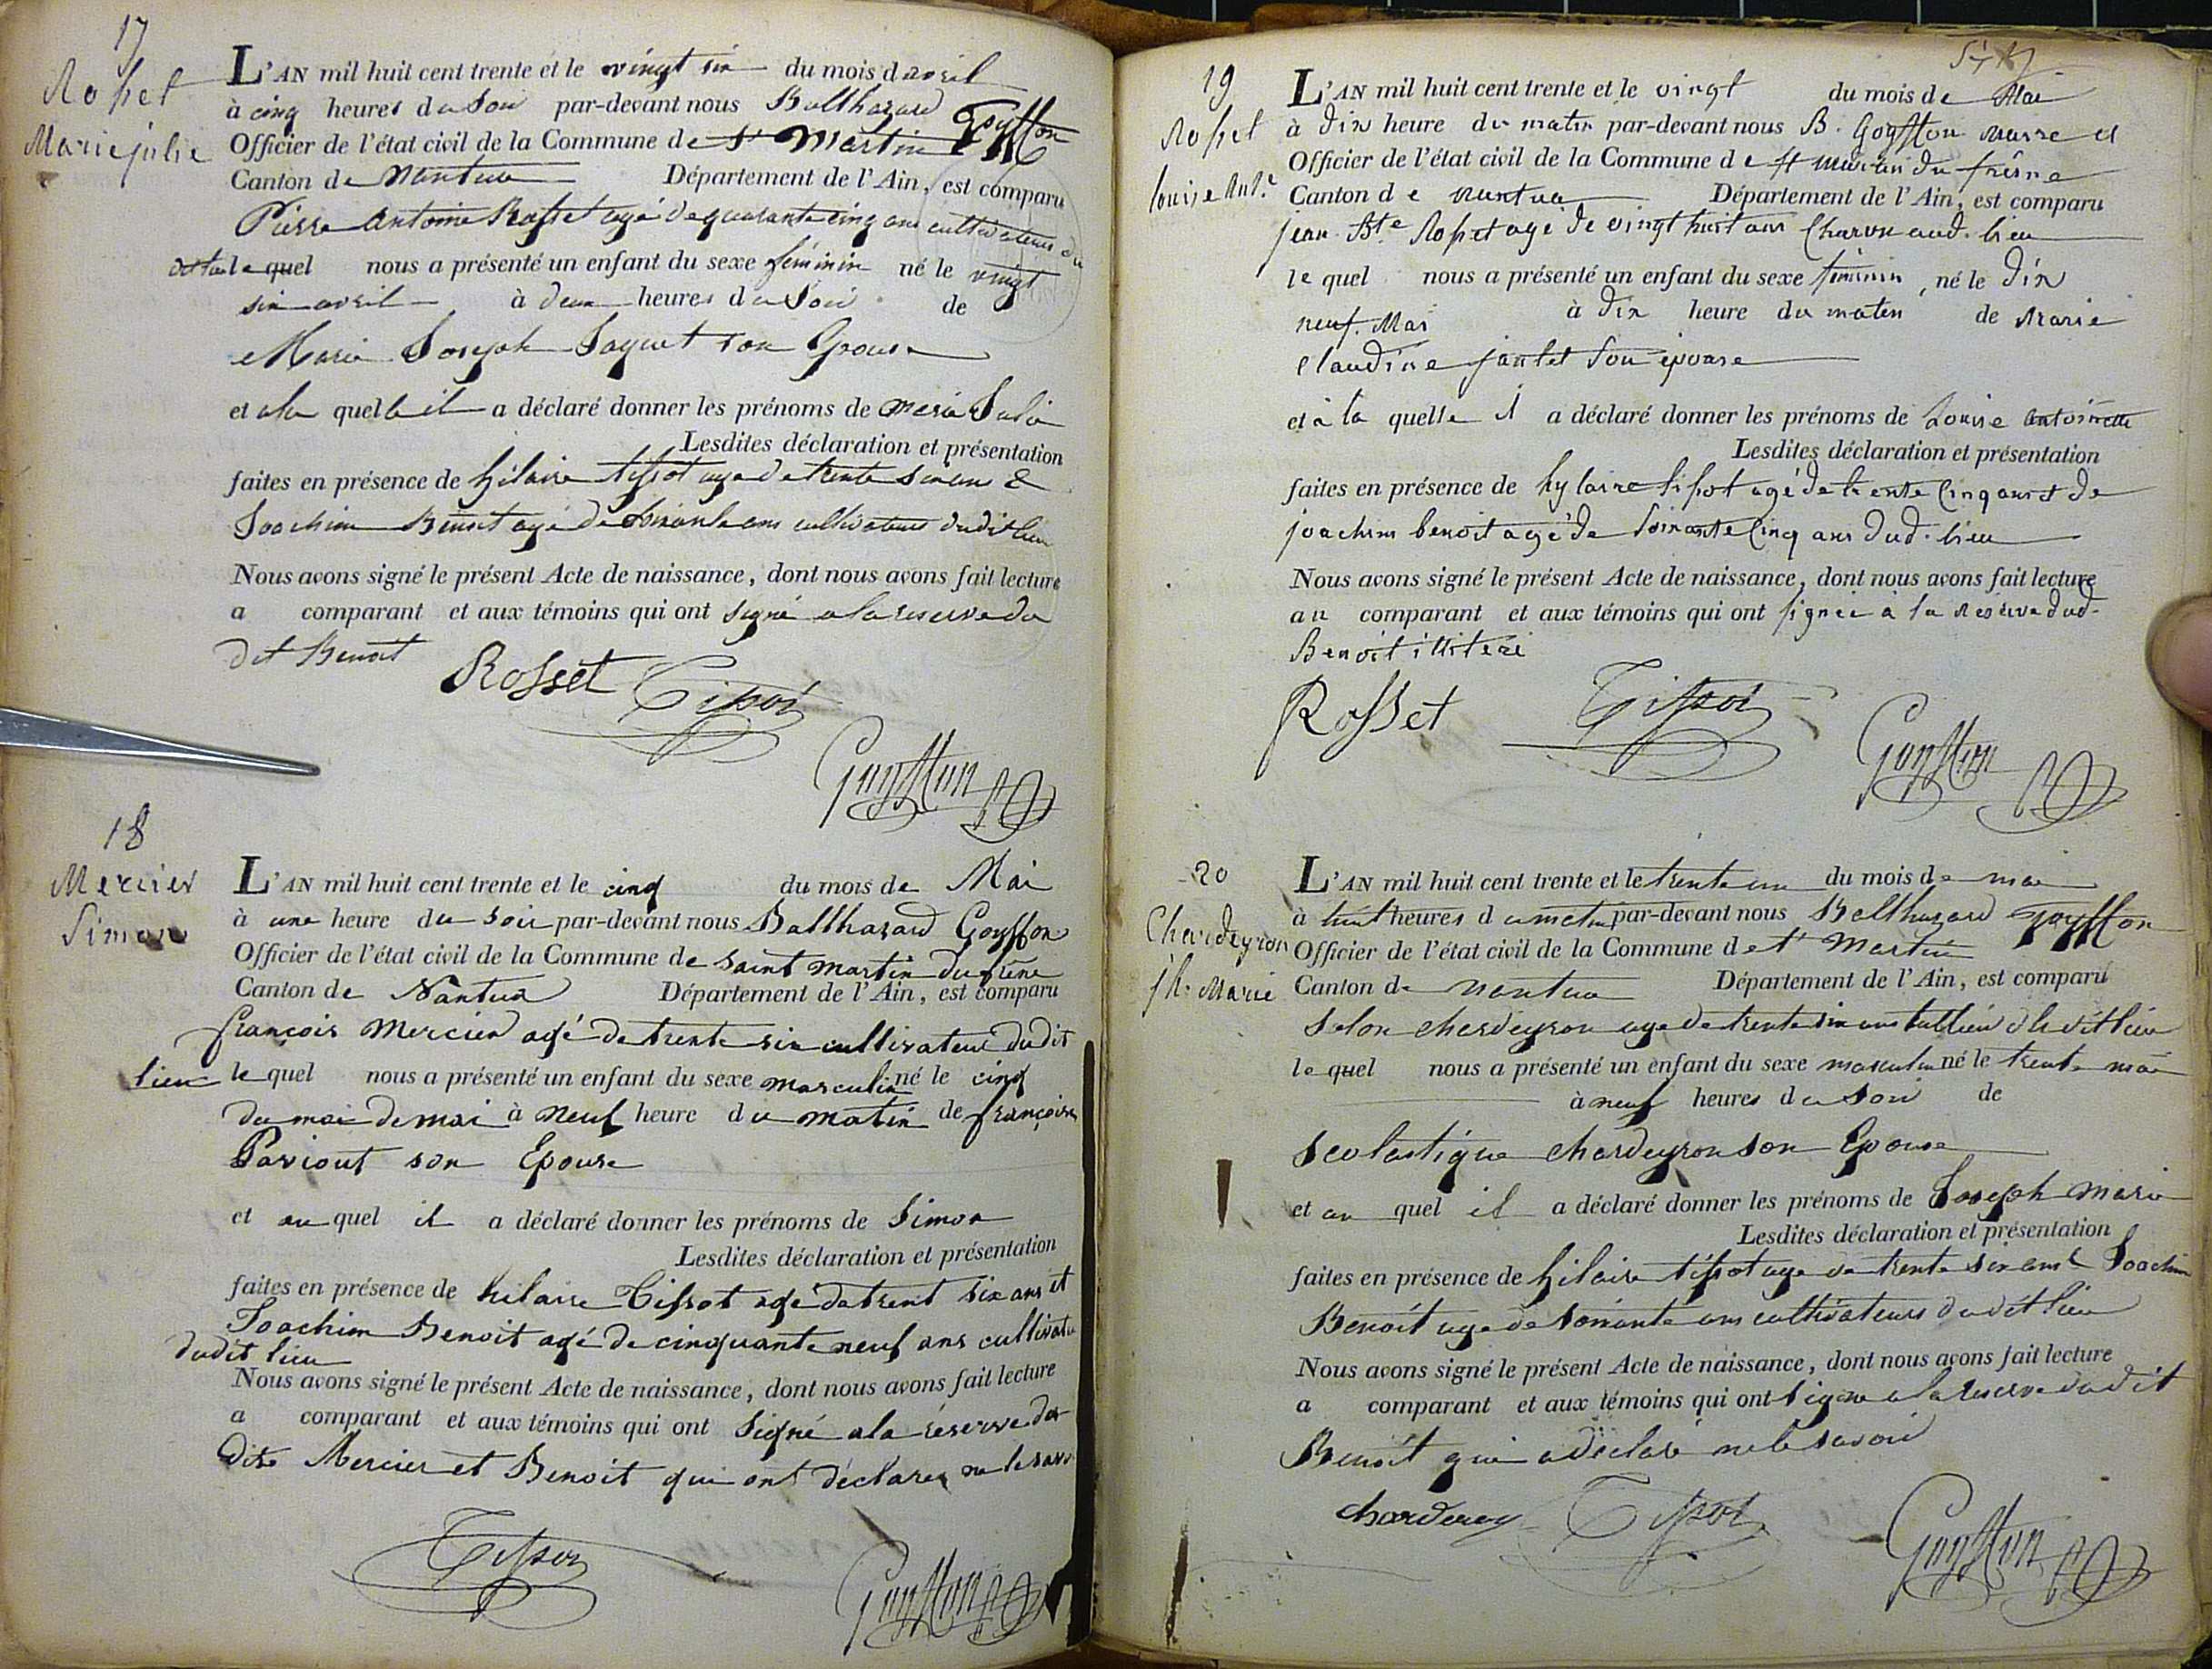 17
Rosset
Marie julie
L'AN mil huit cent trente et le vingt six du mois d avril
à cinq heures du soir par-devant nous Balthazard Goyffon
Officier de l'état civil de la Commune de St Martin
Canton de Nantua Département de l'Ain, est comparu
Pierre Antoine Rosset agé de quarante cinq ans cultivateur du
dit lieu le quel nous a présenté un enfant du sexe féminin né le vingt
six avril à deux heures du soir de
Marie Joseph Jaquet son Epouse
et a la quelle il a déclaré donner les prénoms de Marie Julie
Lesdites déclaration et présentation
faites en présence de hilaire tissot age de trente six ans &
Joachim Benoit agé de soixante ans cultivateurs dudit lieu
Nous avons signé le présent Acte de naissance, dont nous avons fait lecture
a comparant et aux témoins qui ont signé a la reserve du
dit Benoit
Rosset Tissot
Goyffon
18
Mercier
Simon
L'AN mil huit cent trente et le cinq du mois de Mai
à une heure du soir par-devant nous Balthasard Goyffon
Officier de l'état civil de la Commune de saint martin du frêne
Canton de Nantua Département de l'Ain, est comparu
françois Mercier agé de trente six cultivateur dudit
lieu le quel nous a présenté un enfant du sexe masculin né le cinq
du moi de mai à neuf heure du matin de françoise
Paviout son Epouse
et au quel il a déclaré donner les prénoms de Simon
Lesdites déclaration et présentation
faites en présence de hilaire Tissot agé de trent six ans et
Joachim Benoit agé de cinquante neuf ans cultivat
dudit lieu
Nous avons signé le présent Acte de naissance, dont nous avons fait lecture
a comparant et aux témoins qui ont signé a la réserve des
dits Mercier et Benoit qui ont déclarer ne le savoi
Tissot
Goyffon
19
Rosset
louise Ant.e
L'AN mil huit cent trente et le vingt du mois de Mai
à dix heure du matin par-devant nous B. Goyffon Maire et
Officier de l'état civil de la Commune de st martin du frêsne
Canton de nantua Département de l'Ain, est comparu
jean Bte Rosset agé de vingt huit ans Charon aud. lieu
le quel nous a présenté un enfant du sexe féminin, né le dix
neuf. Mai à dix heure du maten de Marie
Claudine jantet son épouse
et à la quelle il a déclaré donner les prénoms de Louise antoinette
Lesdites déclaration et présentation
faites en présence de hylaire tissot agé de trente cinq ans et de
joachim benoit agé de soixante cinq ans dud. lieu
Nous avons signé le présent Acte de naissance, dont nous avons fait lecture
au comparant et aux témoins qui ont signée à la Réserve dud.
Benoit illiteré
Rosset Tissot
Goyffon
20
Chardeyron
jh. Marie
L'AN mil huit cent trente et le trente un du mois de mai
à huit heures du matin par-devant nous Balthazard Goyffon
Officier de l'état civil de la Commune de st Martin
Canton de Nantua Département de l'Ain, est comparu
chardeyron age de trente six ans dudit lieu
le quel nous a présenté un enfant du sexe masculin né le trente mai
à neuf heures du soir de
Scolastique chardeyron son Epouse
et au quel il a déclaré donner les prénoms de Joseph marie
Lesdites déclaration et présentation
faites en présence de hilaire tissot age de trente six ans & Joachim
Benoit age de soixante ans cultivateurs dudit lieu
Nous avons signé le présent Acte de naissance, dont nous avons fait lecture
a comparant et aux témoins qui ont signe a la reserve dudit
Benoit qui a déclaré ne le savoir
Tissot
Goyffon